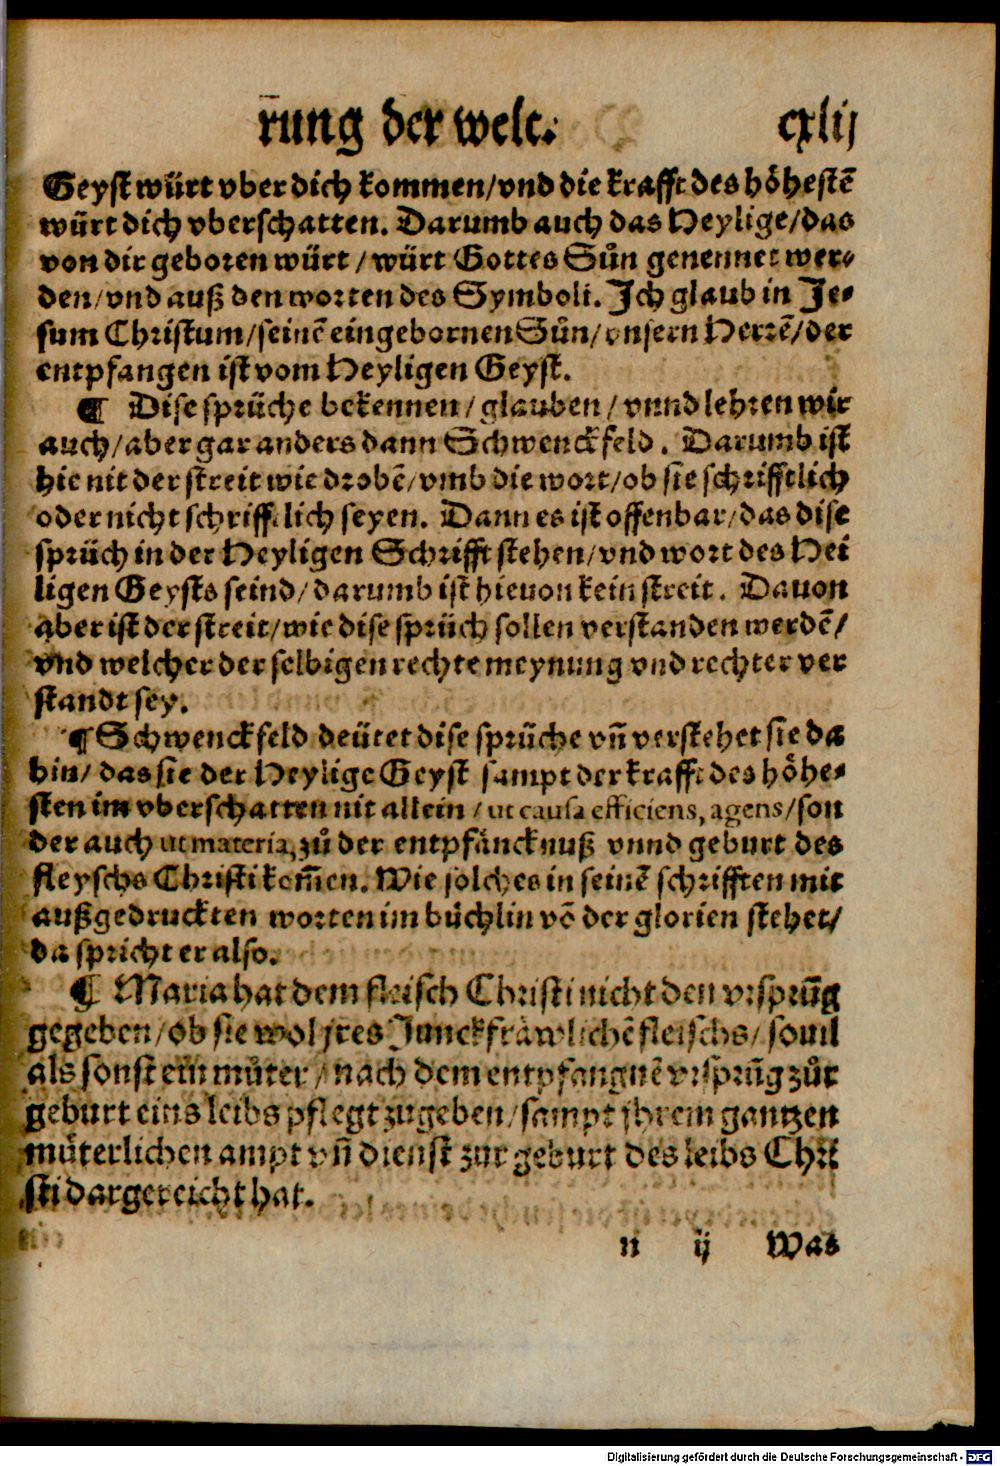 rung der welt. cxlij
Geyst würt vber dich kommen/vnd die krafft des höhestē
würt dich vberschatten. Darumb auch das Heylige/das
von dir geboren würt/würt Gottes Sůn genennet wer-
den/vnd auß den worten des Symboli. Ich glaub in Je-
sum Christum/seinē eingebornen Sůn/vnsern Herrē/der
entpfangen ist vom Heyligen Geyst.
¶ Dise sprüche bekennen/glauben/vnnd lehren wir
auch/aber gar anders dann Schwenckfeld. Darumb ist
hie nit der streit wie drobē/vmb die wort/ob sie schrifftlich
oder nicht schrifftlich seyen. Dann es ist offenbar/das dise
sprüch in der Heyligen Schrifft stehen/vnd wort des Hei
ligen Geysts seind/darumb ist hieuon kein streit. Dauon
aber ist der streit/wie dise sprüch sollen verstanden werdē/
vnd welcher der selbigen rechte meynung vnd rechter ver
standt sey.
¶ Schwenckfeld deütet dise sprüche vñ verstehet sie da
hin/das sie der Heylige Geyst sampt der krafft des höhe-
sten im vberschatten nit allein/ut causa efficiens, agens/son
der auch ut materia, zů der entpfäncknuß vnnd geburt des
fleyschs Christi kom̃en. Wie solches in seinē schrifften mit
außgedruckten worten im büchlin vō der glorien stehet/
da spricht er also.
¶ Maria hat dem fleisch Christi nicht den vrsprūg
gegeben/ob sie wol jres Junckfräwlichē fleischs/souil
als sonst ein můter/nach dem entpfangnē vrsprūg zůr
geburt eins leibs pflegt zugeben/sampt jhrem gantzen
müterlichen ampt vñ dienst zur geburt des leibs Chri
sti dargereicht hat.
n ij Was
Digitalisierung gefördert durch die Deutsche Forschungsgemeinschaft - DFG